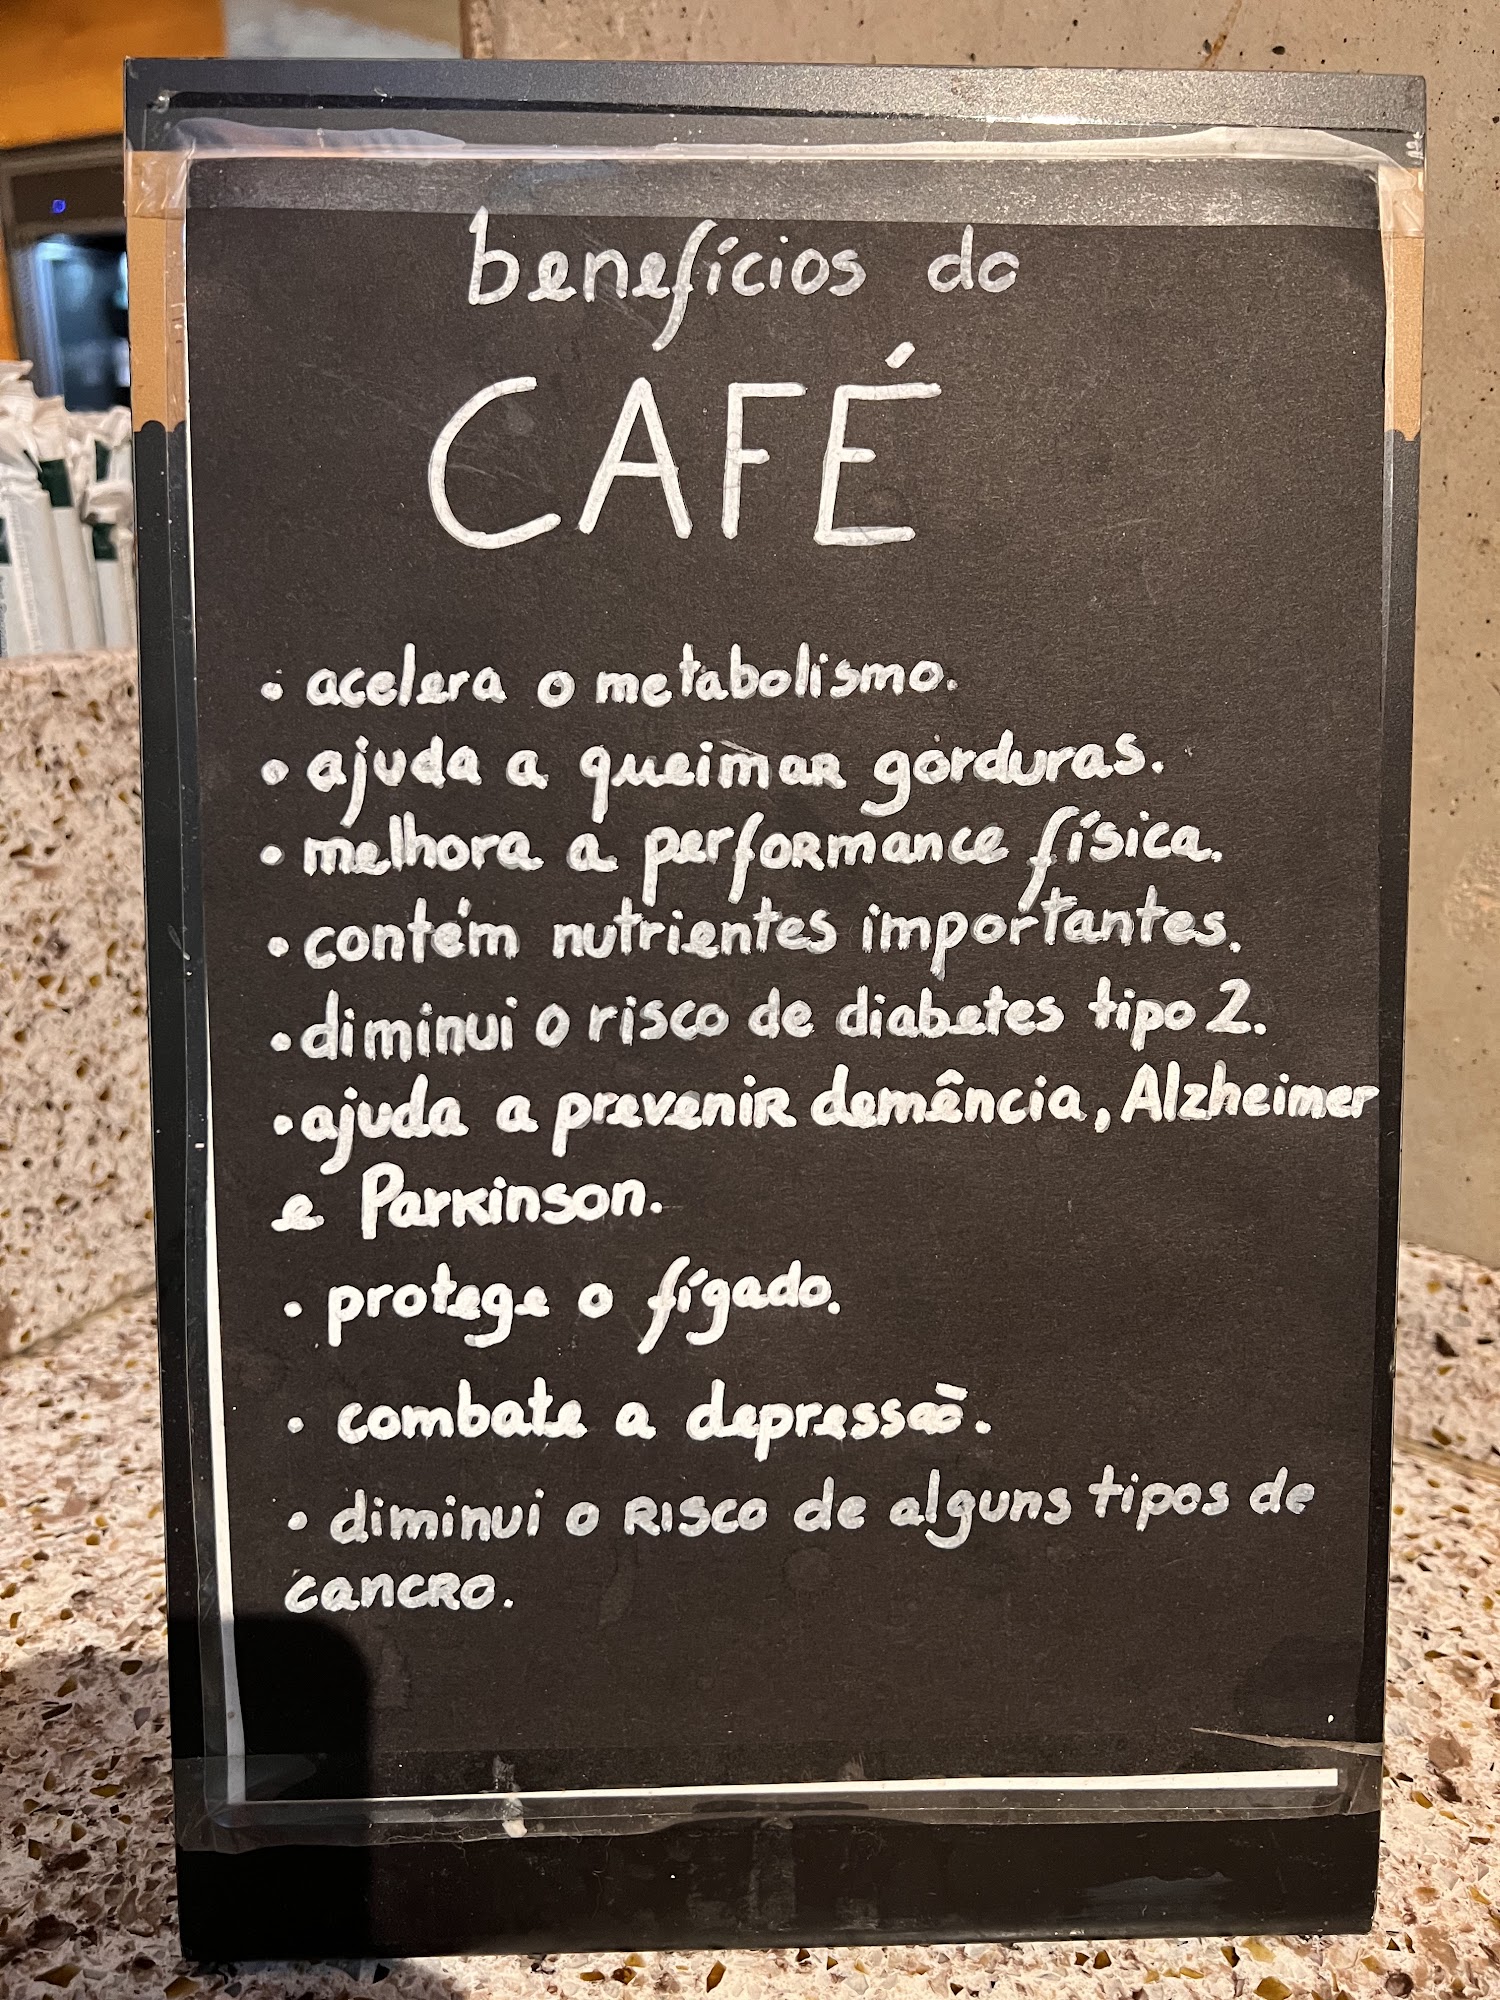 benefícios do
CAFÉ
• acelera o metabolismo.
• ajuda a queimar gorduras.
• melhora a performance física.
• contém nutrientes importantes.
• diminui o risco de diabetes tipo 2.
• ajuda a prevenir demência, Alzheimer
e Parkinson.
• protege o fígado.
• combate a depressão.
• diminui o risco de alguns tipos de
cancro.